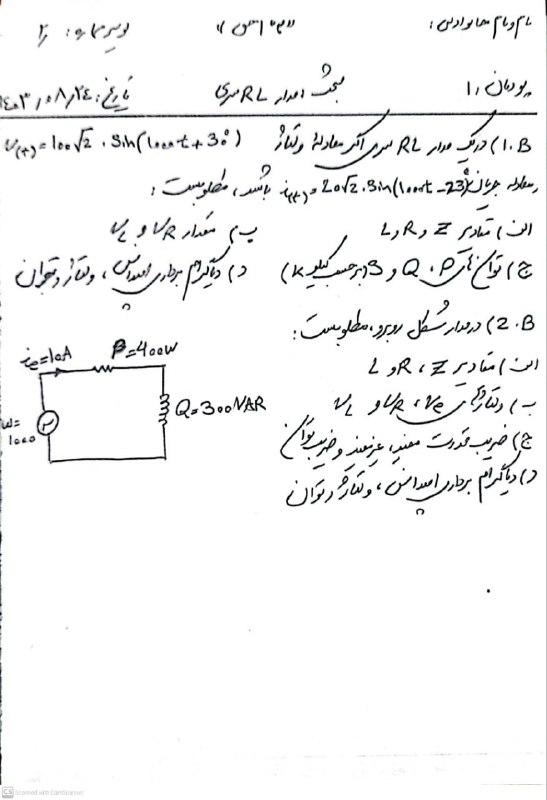 نام و نام خانوادگی:
پودمان: 1 مبحث: مدار RL سری تاریخ: 1403/08/24
1.B) در یک مدار RL سری اگر معادله ولتاژ V(t)=100√2.Sin(1000t+30°)
و معادله جریان i(t)=20√2.Sin(1000t-23°) باشد، مطلوبست:
الف) مقادیر Z و R و L ب) مقدار VR و VL
ج) توان های P، Q و S (برحسب کیلو K) د) دیاگرام برداری امپدانس، ولتاژ و توان
2.B) در مدار شکل روبرو، مطلوبست:
الف) مقادیر Z، R و L
ب) ولتاژهای Ve، VR و VL
ج) ضریب قدرت مفید، غیرمفید و ضریب توان
د) دیاگرام برداری امپدانس، ولتاژ و توان
ie=10A P=400W
Q=300VAR
ω=
1000
CS Scanned with CamScanner